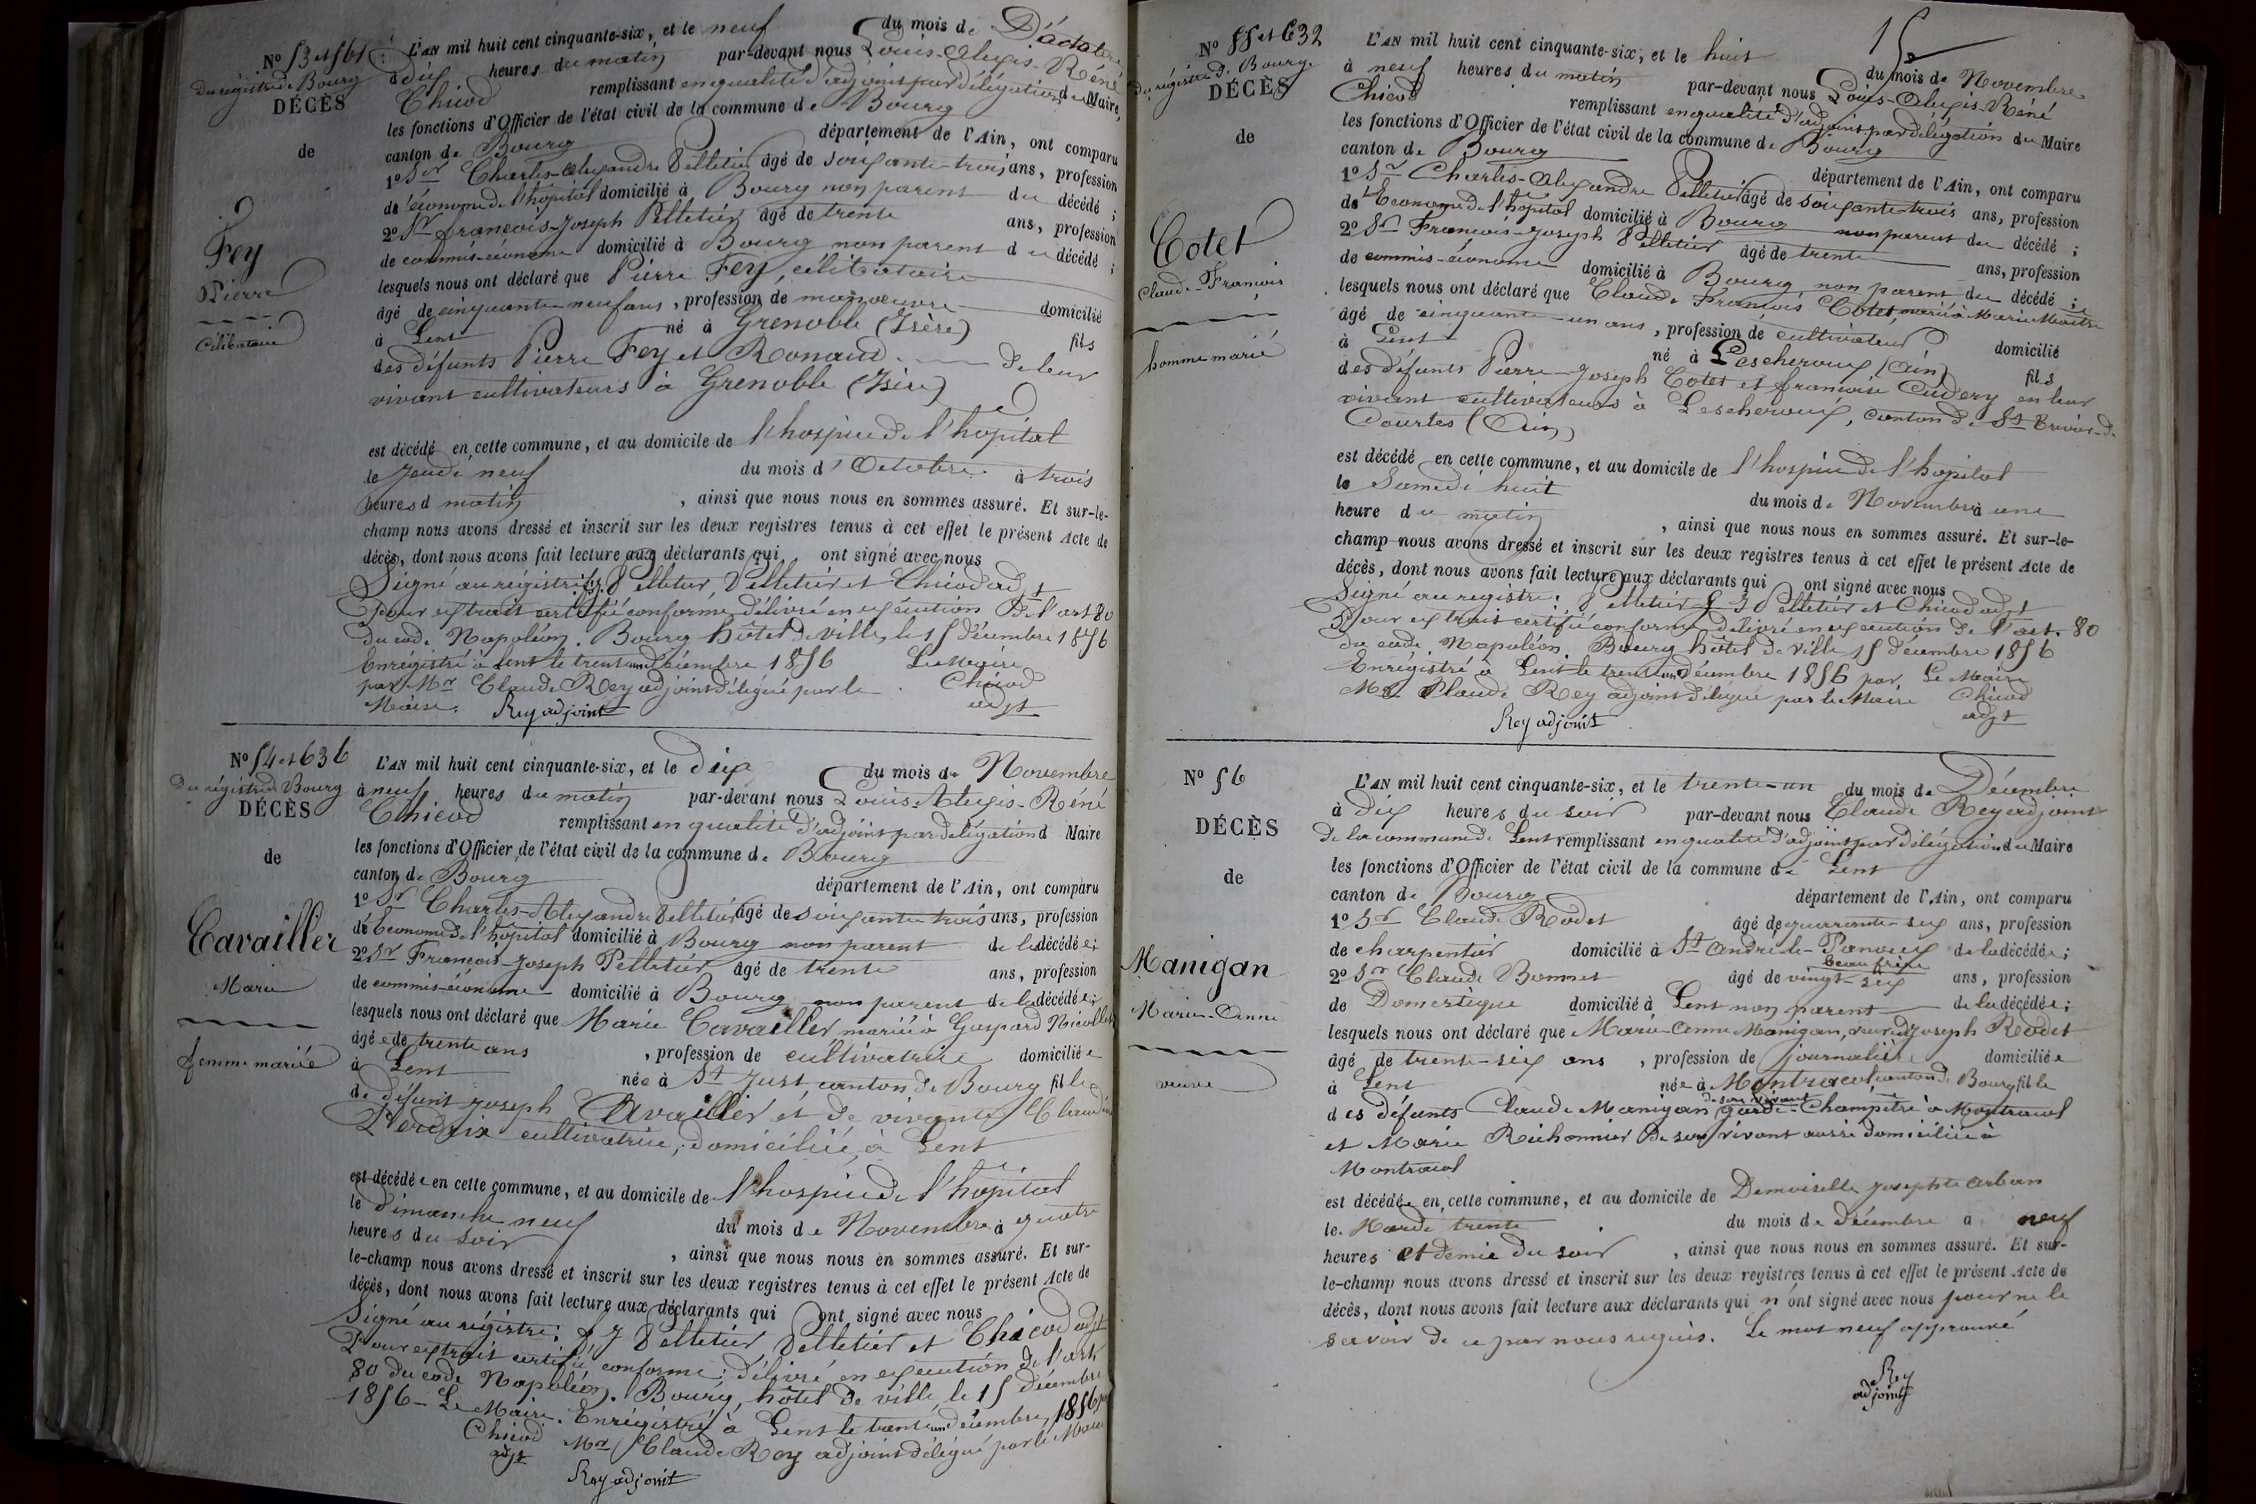 N° 53 et 561
du registre de Bourg
DÉCÈS
de
Fey
Pierre
célibataire
L'AN mil huit cent cinquante-six, et le neuf du mois d'octobre
à dix heures du matin par-devant nous Louis-Alexis-Réné
Chicod remplissant en qualité d'adjoint par délégation du Maire,
les fonctions d'Officier de l'état civil de la commune de Bourg
canton de Bourg département de l'Ain, ont comparu
1° Sr Charles-Alexandre Pelletier âgé de soixante-trois ans, profession
de économe de l'hôpital domicilié à Bourg non parent du décédé ;
2° Sr françois-Joseph Pelletier âgé de trente ans, profession
de commis-économe domicilié à Bourg non parent du décédé ;
lesquels nous ont déclaré que Pierre Fey, célibataire
âgé de cinquante-neuf ans, profession de manoeuvre domicilié
à Lent né à Grenoble (Isère) fils
des défunts Pierre Fey et Renaud de leur
vivant cultivateurs à Grenoble (Isère)
est décédé en cette commune, et au domicile de l'hospice de l'hopital
le Jeudi neuf du mois d'Octobre à trois
heures d matin, ainsi que nous nous en sommes assuré. Et sur-le-
champ nous avons dressé et inscrit sur les deux registres tenus à cet effet le présent Acte de
décès, dont nous avons fait lecture aux déclarants qui ont signé avec nous
Signé au régistre: f. J. Pelletier, Pelletier et Chicod adjt
Pour extrait certifié conforme, délivré en exécution de l'art 80
du code Napoléon. Bourg hôtel de ville, le 15 décembre 1856
Enrégistré à Lent le trente un Décembre 1856 Le Maire
par Mr Claude Rey adjoint délégué par le Chicod
Maire. Rey adjoint adjt
N° 54 et 636
du régistre de Bourg
DÉCÈS
de
Cavailler
Marie
femme mariée
L'AN mil huit cent cinquante-six, et le dix du mois de Novembre
à neuf heures du matin par-devant nous Louis-Alexis-Réné
Chicod remplissant en qualité d'adjoint par délégation d Maire
les fonctions d'Officier de l'état civil de la commune de Bourg
canton de Bourg département de l'Ain, ont comparu
1° Sr Charles-Alexandre Pelletier âgé de soixante-trois ans, profession
de Econome de l'hôpital domicilié à Bourg non parent de la décédée ;
2° Sr François-Joseph Pelletier âgé de trente ans, profession
de commis-économe domicilié à Bourg non parent de la décédée ;
lesquels nous ont déclaré que Marie Cavailler mariée à Gaspard Nicollet
âgée de trente ans, profession de cultivatrice domiciliée
à Lent née à St Just canton de Bourg fille
de défunt Joseph Cavailler et de vivante Claudine
cultivatrice, domiciliée à Lent
est décédée en cette commune, et au domicile de l'hospice de l'hôpital
le dimanche neuf du mois de Novembre à quatre
heures du soir, ainsi que nous nous en sommes assuré. Et sur-
le-champ nous avons dressé et inscrit sur les deux registres tenus à cet effet le présent Acte de
décès, dont nous avons fait lecture aux déclarants qui ont signé avec nous
Signé au régistre: f J Pelletier Pelletier et Chicod adjt
Pour extrait certifié conforme: délivré en exécution de l'art
80 du code Napoléon. Bourg, hôtel de ville le 15 décembre
1856 - Le Maire. Enregistré à Lent le trente un décembre, 1856 par
Chicod Mr Claude Rey adjoint délégué par le Maire
adjt Rey adjoint
15
N° 55 et 632
du régistre de Bourg
DÉCÈS
de
Cotet
Claude-François
homme marié
L'AN mil huit cent cinquante-six, et le huit du mois de Novembre
à neuf heures du matin par-devant nous Louis-Alexis-Réné
Chicod remplissant en qualité d'adjoint par délégation du Maire
les fonctions d'Officier de l'état civil de la commune de Bourg
canton de Bourg département de l'Ain, ont comparu
1° Sr Charles-Alexandre Pelletier âgé de soixante-trois ans, profession
de Econome de l'hôpital domicilié à Bourg non parent du décédé ;
2° Sr François-Joseph Pelletier âgé de trente ans, profession
de commis-économe domicilié à Bourg non parent du décédé ;
lesquels nous ont déclaré que Claude François Cotet, marié à Marie
âgé de cinquante-un ans, profession de cultivateur domicilié
à Lent né à Lescheroux (Ain) fils
des défunts Pierre-Joseph Cotet et françoise Cudery en leur
vivant cultivateurs à Lescheroux, canton de St Trivier-de
Courtes (Ain)
est décédé en cette commune, et au domicile de l'hospice de l'hopital
le Samedi huit du mois de Novembre à une
heure du matin, ainsi que nous nous en sommes assuré. Et sur-le-
champ nous avons dressé et inscrit sur les deux registres tenus à cet effet le présent Acte de
décès, dont nous avons fait lecture aux déclarants qui ont signé avec nous
Signé au registre: Pelletier f J Pelletier et Chicod adjt
Pour extrait certifié conforme délivré en exécution de l'art. 80
du code Napoléon. Bourg hôtel de ville 15 décembre 1856
Enrégistré à Lent le trente un décembre 1856 par Le Maire
Mr Claude Rey adjoint délégué par le Maire Chicod
Rey adjoint adjt
N° 56
DÉCÈS
de
Manigan
Marie-Anne
veuve
L'AN mil huit cent cinquante-six, et le trente-un du mois de Décembre
à dix heures du soir par-devant nous Claude Rey adjoint
de la commune de Lent remplissant en qualité d'adjoint par délégation du Maire
les fonctions d'Officier de l'état civil de la commune de Lent
canton de Bourg département de l'Ain, ont comparu
1° Sr Claude Rodet âgé de quarante-six ans, profession
de charpentier domicilié à St André-le-Panoux beau frère de la décédée ;
2° Sr Claude Bonnet âgé de vingt-six ans, profession
de Domestique domicilié à Lent non parent de la décédée ;
lesquels nous ont déclaré que Marie-Anne Manigan, veuve de Joseph Rodet
âgé de trente-six ans, profession de journalière domiciliée
à Lent née à Montracol canton de Bourg fille
des défunts Claude Manigan de son vivant garde-Champêtre à Montracol
et Marie Richonnier de son vivant aussi domiciliée à
Montracol
est décédée en cette commune, et au domicile de Demoiselle Josephte Arban
le Mardi trente du mois de décembre a neuf
heures et demie du soir, ainsi que nous nous en sommes assuré. Et sur-
le-champ nous avons dressé et inscrit sur les deux registres tenus à cet effet le présent Acte de
décès, dont nous avons fait lecture aux déclarants qui n'ont signé avec nous pour ne le
savoir de ce par nous requis. Le mot neuf approuvé
Rey
adjoint